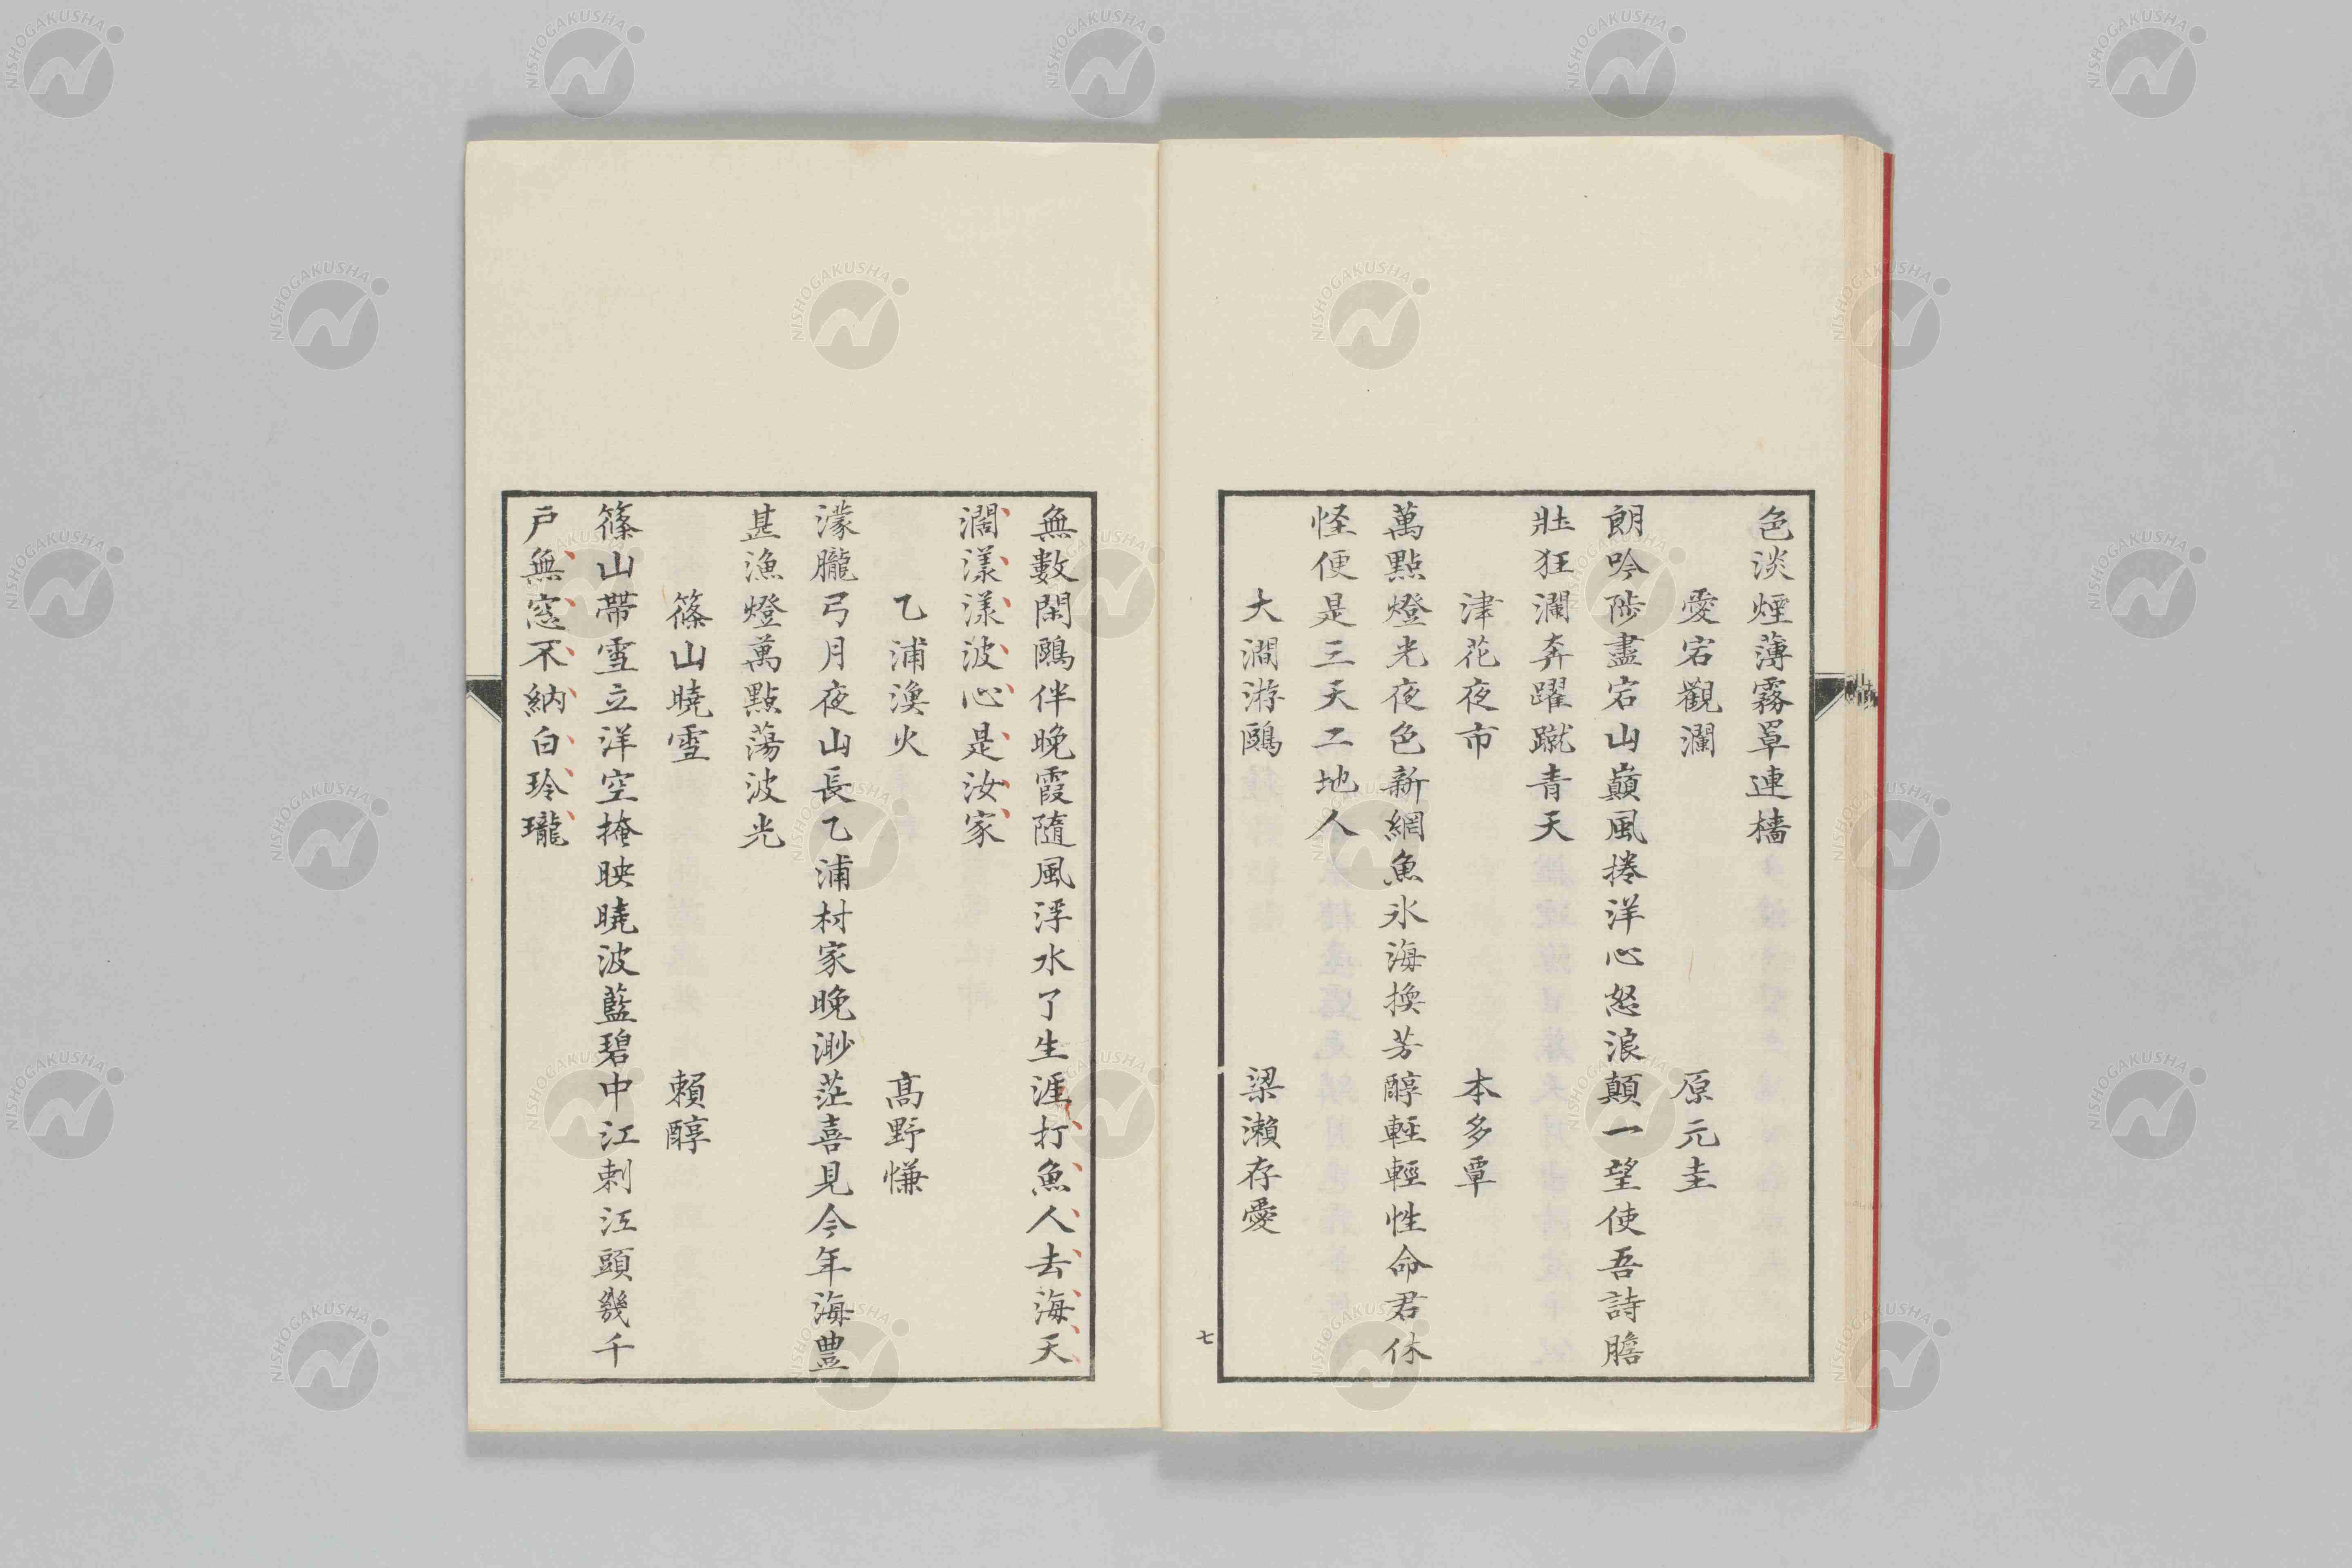 色淡煙薄霧罩連檣
愛宕觀瀾 原元圭
朗吟陟盡宕山巔風捲洋心怒浪顛一望使吾詩膽
壯狂瀾奔躍蹴青天
津花夜市 本多覃
萬點燈光夜色新網魚氷海換芳醇輕輕性命君休
怪便是三天二地人
大澗游鷗 梁瀨存愛
七
無數閑鷗伴晚霞隨風浮水了生涯打魚人去海天
濶漾漾波心是汝家
乙浦漁火 髙野慊
濛朧弓月夜山長乙浦村家晚渺茫喜見今年海豊
甚漁燈萬點蕩波光
篠山曉雪 賴醇
篠山帶雪立洋空掩映曉波藍碧中江刺江頭幾千
戶無窓不納白玲瓏
NISHOGAKUSHA